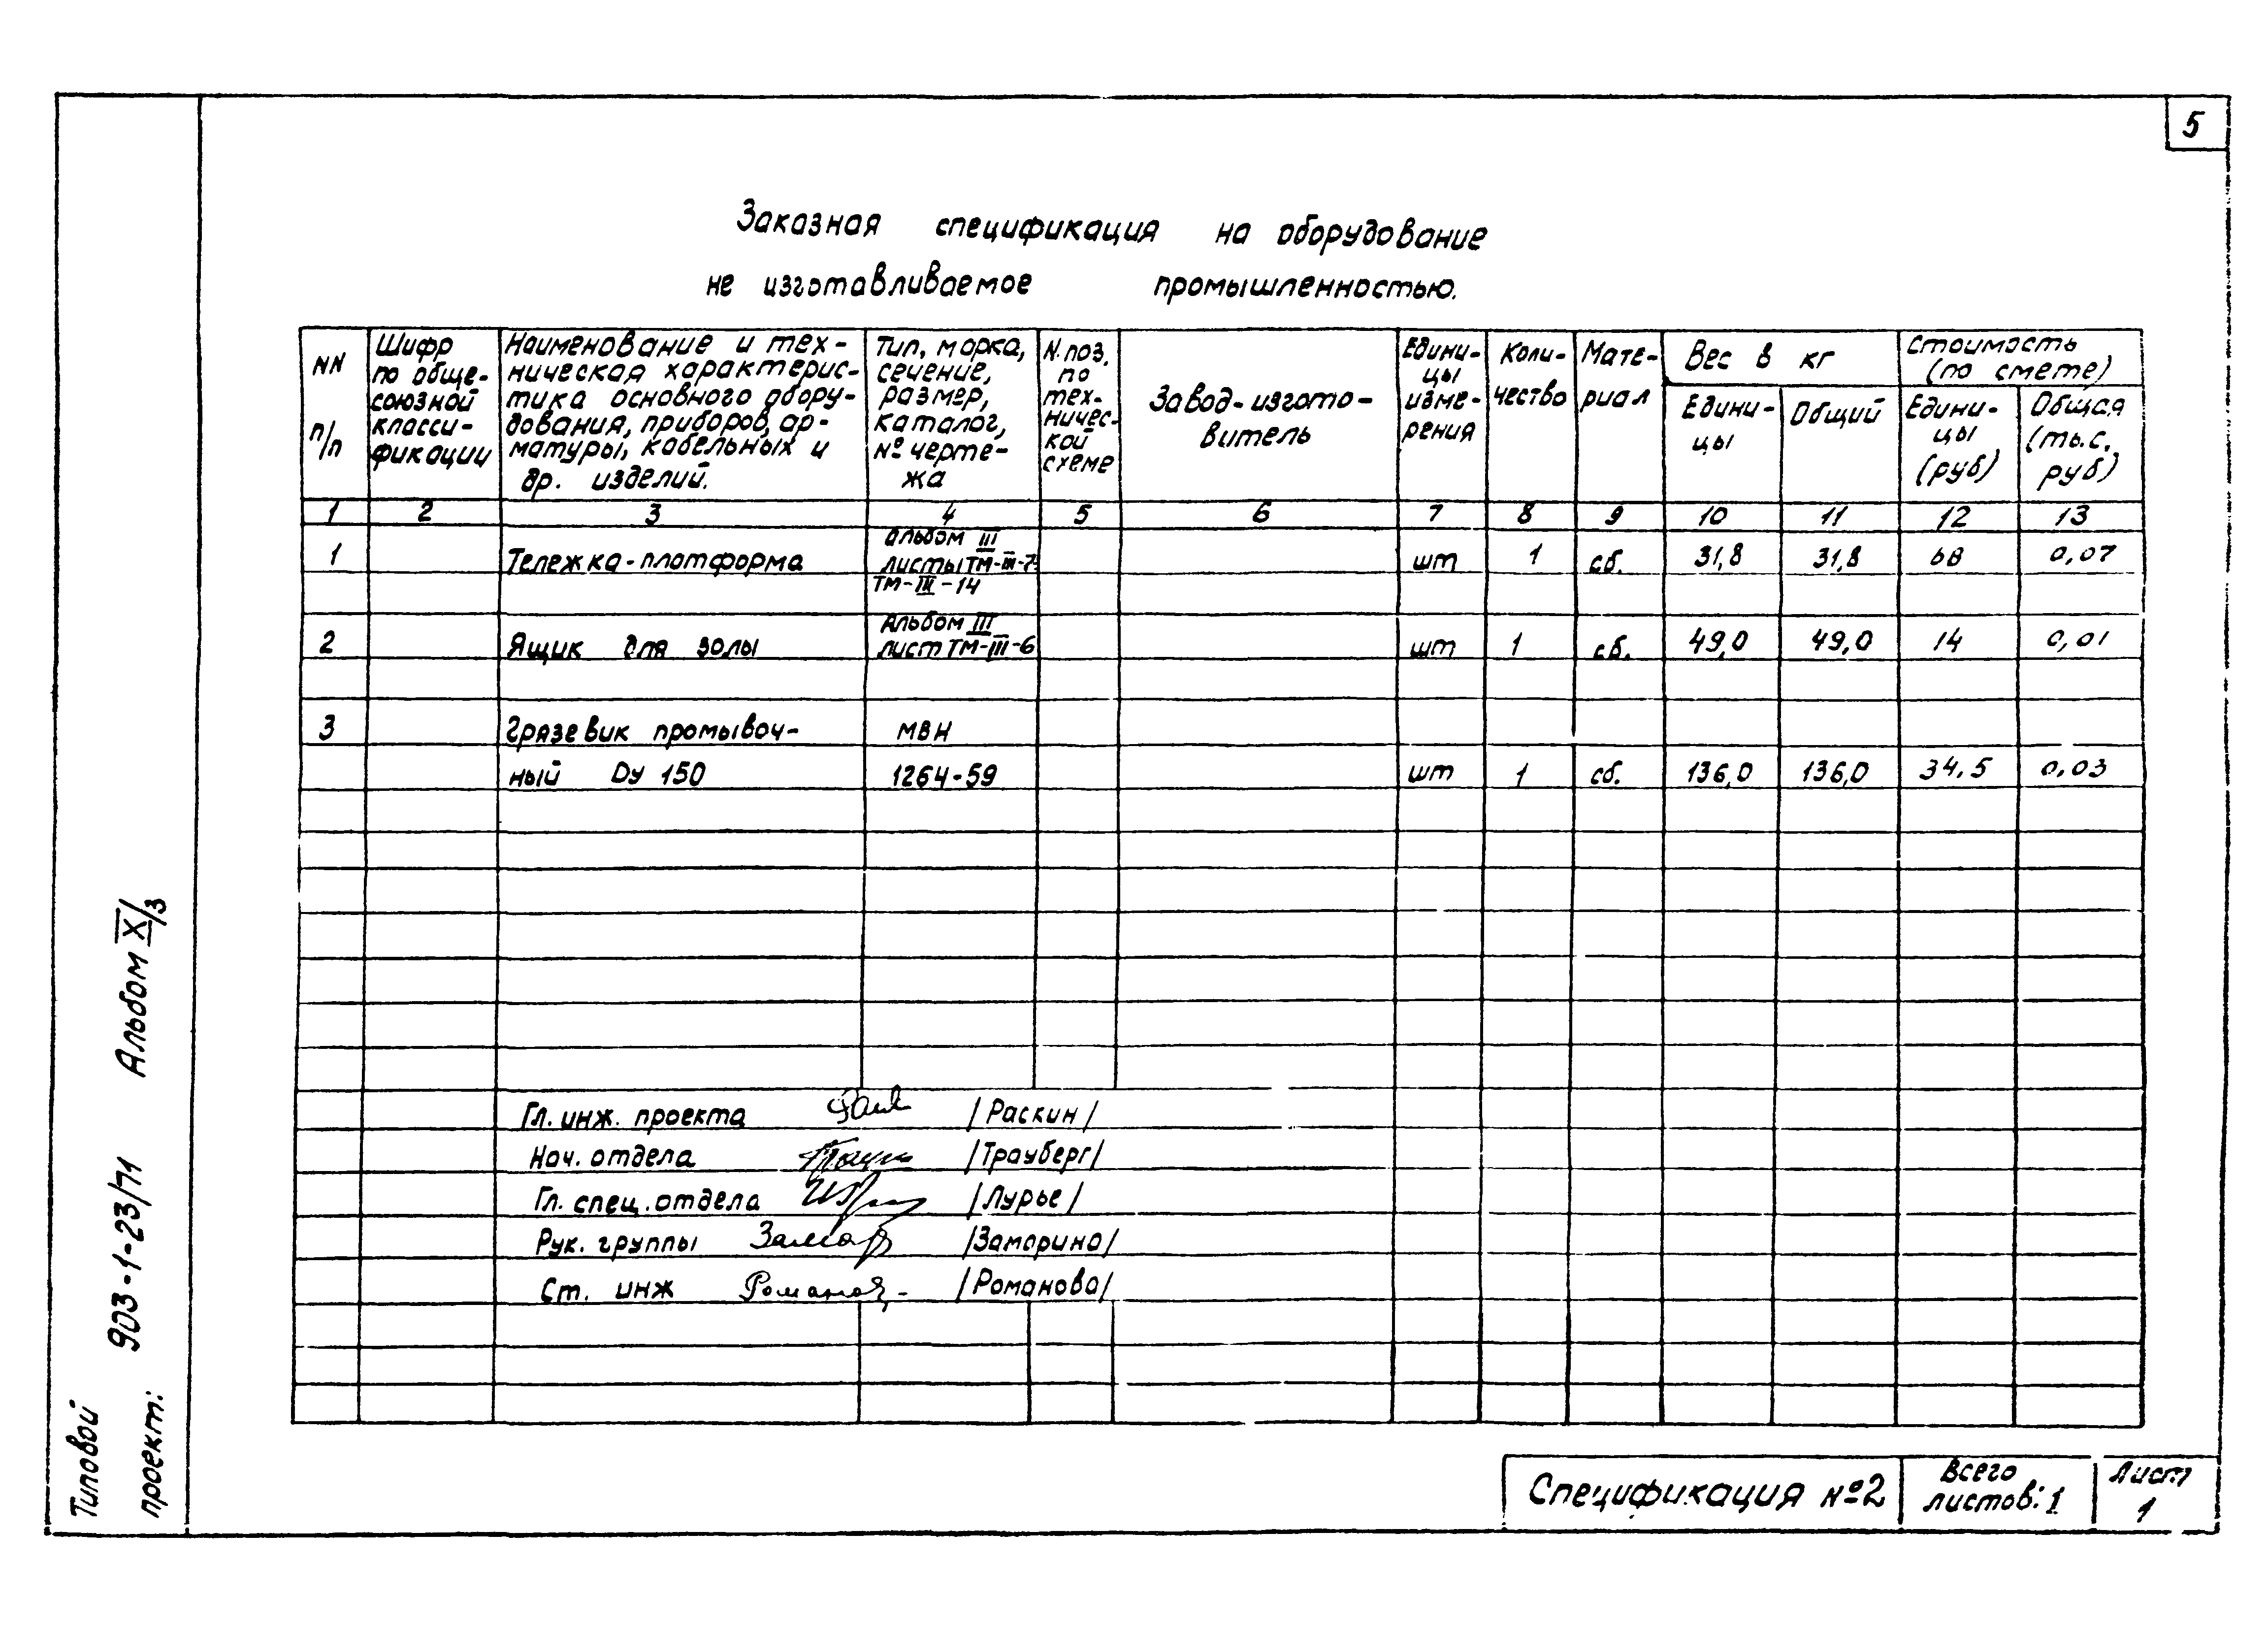 5
Заказная спецификация на оборудование
не изготавливаемое промышленностью.
NN п/п
Шифр по обще-союзной класси-фикации
Наименование и тех-
ническая характерис-
тика основного обору-
дования, приборов, ар-
матуры, кабельных и
др. изделий.
Тип, марка,
сечение,
размер,
каталог,
№ черте-
жа
N. поз.
по
тех-
ничес-
кой
схеме
Завод-изгото-
витель
Едини-
цы
изме-
рения
Коли-
чество
Мате-
риал
Вес в кг
Едини-
цы
Общий
Стоимость
(по смете)
Едини-
цы
(руб)
Общая
(тыс.
руб)
1 2 3 4 5 6 7 8 9 10 11 12 13
альбом III
1 Тележка-платформа листы ТМ-III-7- шт 1 сб. 31,8 31,8 68 0,07
ТМ-III-14
Альбом III
2 Ящик для золы лист ТМ-III-6 шт 1 сб. 49,0 49,0 14 0,01
3 Грязевик промывоч- МВН
ный Dу 150 1264-59 шт 1 сб. 136,0 136,0 34.5 0,03
Гл. инж. проекта /Раскин/
Нач. отдела /Трауберг/
Гл. спец. отдела /Лурье/
Рук. группы /Заморина/
Ст. инж /Романова/
Типовой
проект: 903-1-23/71 Альбом XI/3
Спецификация №2
Всего
листов: 1
Лист
1